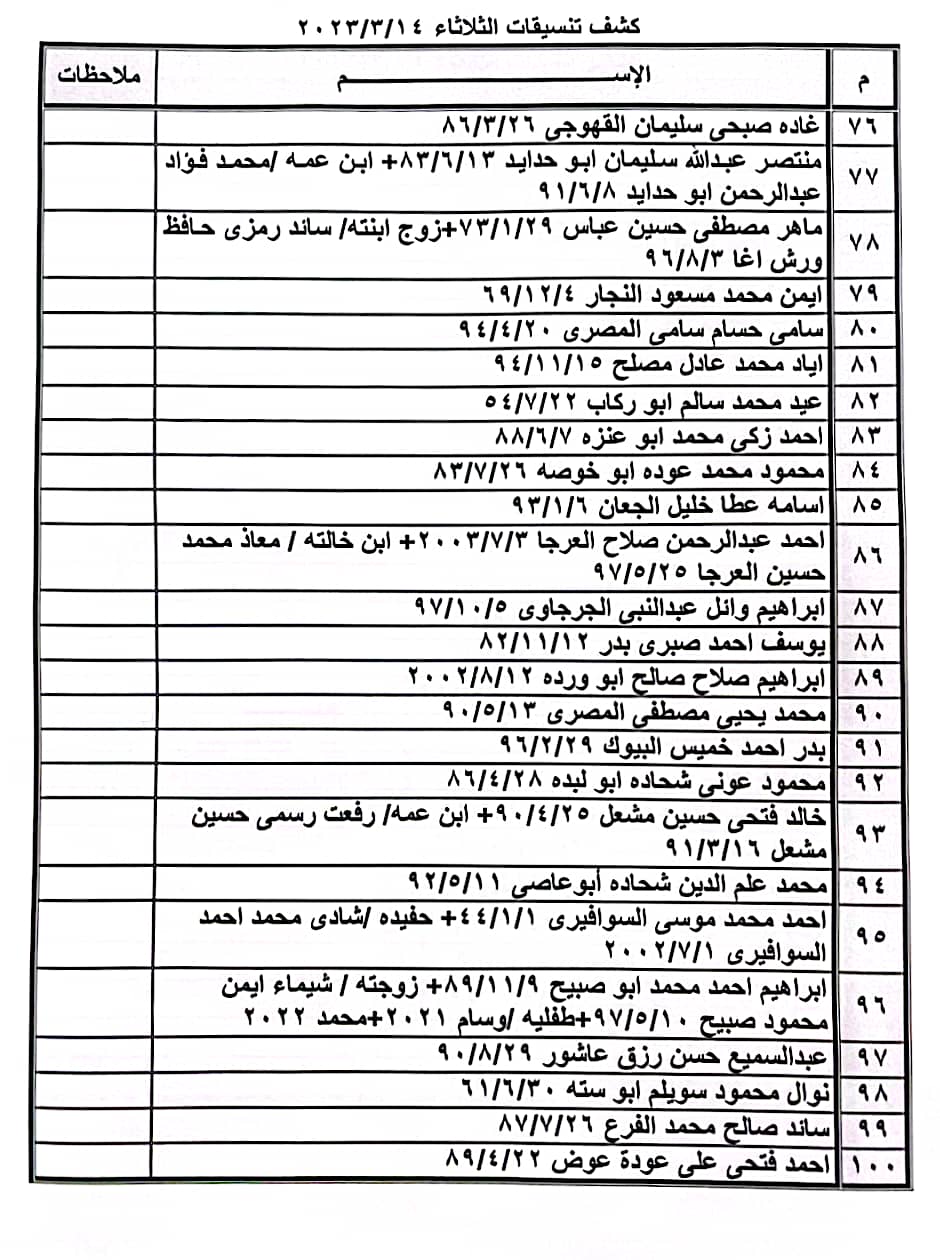 كشف تنسيقات الثلاثاء ٢٠٢٣/٣/١٤
م الإســـــــــــــــــم ملاحظات
٧٦ غاده صبحى سليمان القهوجى ٨٦/٣/٢٦
٧٧ منتصر عبدالله سليمان ابو حدايد ٨٣/٦/١٣+ ابن عمه /محمد فؤاد
عبدالرحمن ابو حدايد ٩١/٦/٨
٧٨ ماهر مصطفى حسين عباس ٧٣/١/٢٩+زوج ابنته/ سائد رمزى حافظ
ورش اغا ٩٦/٨/٣
٧٩ ايمن محمد مسعود النجار ٦٩/١٢/٤
٨٠ سامى حسام سامى المصرى ٩٤/٤/٢٠
٨١ اياد محمد عادل مصلح ٩٤/١١/١٥
٨٢ عيد محمد سالم ابو ركاب ٥٤/٧/٢٢
٨٣ احمد زكى محمد ابو عنزه ٨٨/٦/٧
٨٤ محمود محمد عوده ابو خوصه ٨٣/٧/٢٦
٨٥ اسامه عطا خليل الجعان ٩٣/١/٦
٨٦ احمد عبدالرحمن صلاح العرجا ٢٠٠٣/٧/٣+ ابن خالته / معاذ محمد
حسين العرجا ٩٧/٥/٢٥
٨٧ ابراهيم وائل عبدالنبى الجرجاوى ٩٧/١٠/٥
٨٨ يوسف احمد صبرى بدر ٨٢/١١/١٢
٨٩ ابراهيم صلاح صالح ابو ورده ٢٠٠٢/٨/١٢
٩٠ محمد يحيى مصطفى المصرى ٩٠/٥/١٣
٩١ بدر احمد خميس البيوك ٩٦/٢/٢٩
٩٢ محمود عونى شحاده ابو لبده ٨٦/٤/٢٨
٩٣ خالد فتحى حسين مشعل ٩٠/٤/٢٥+ ابن عمه/ رفعت رسمى حسين
مشعل ٩١/٣/١٦
٩٤ محمد علم الدين شحاده أبوعاصى ٩٢/٥/١١
٩٥ احمد محمد موسى السوافيرى ٤٤/١/١+ حفيده /شادى محمد احمد
السوافيرى ٢٠٠٢/٧/١
٩٦ ابراهيم احمد محمد ابو صبيح ٨٩/١١/٩+ زوجته / شيماء ايمن
محمود صبيح ٩٧/٥/١٠+طفليه /وسام ٢٠٢١+محمد ٢٠٢٢
٩٧ عبدالسميع حسن رزق عاشور ٩٠/٨/٢٩
٩٨ نوال محمود سويلم ابو سته ٦١/٦/٣٠
٩٩ سائد صالح محمد الفرع ٨٧/٧/٢٦
١٠٠ احمد فتحى على عودة عوض ٨٩/٤/٢٢